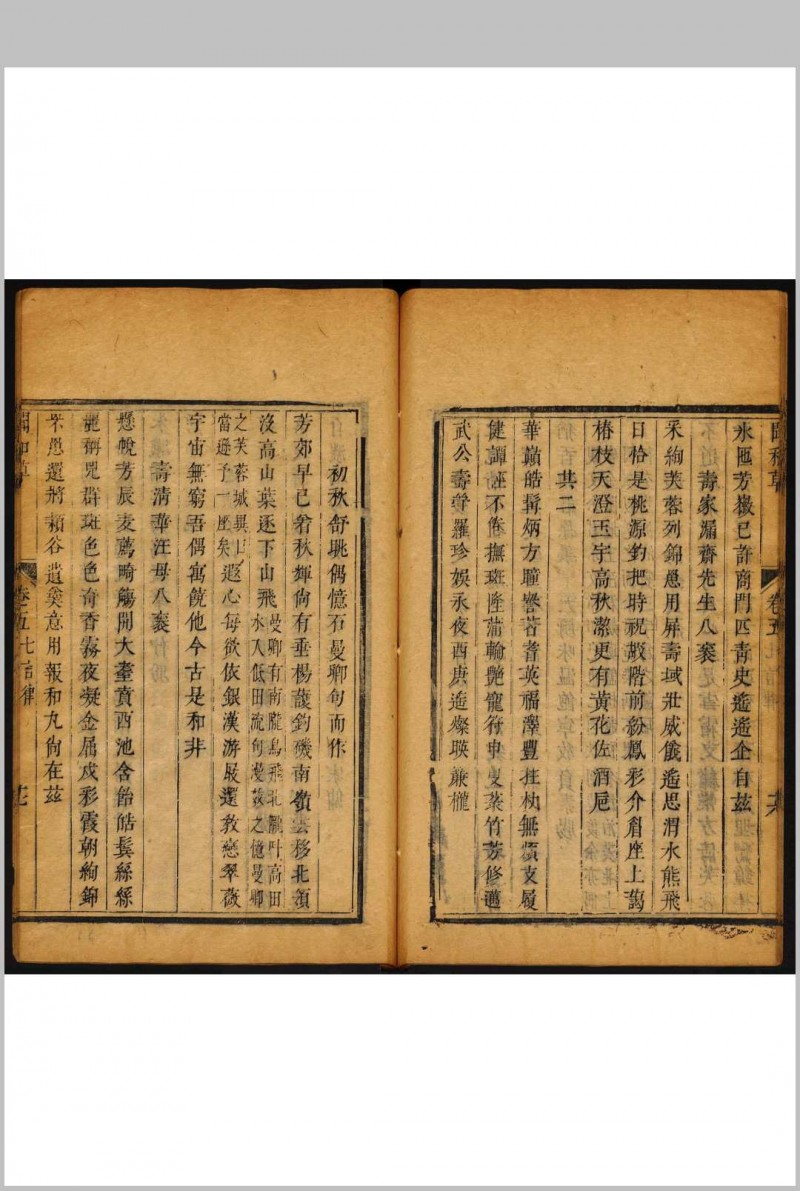 卷五
氷匜芳徽已許商門匹青史遥遥企自茲
壽家漏齋先生八袠
采絢芙蓉列錦帷用屏壽域壯威儀遥思渭水熊飛
日恰是桃源釣把時祝嘏階前紛鳳彩介眉座上藹
椿枝天澄玉宇高秋潔更有黃花佐酒卮
其二
華巔皓髯炳方瞳譽茗耆英福澤豐拄杖無煩支履
健譚經不倦撫斑隆蒲輪艷寵行申叟菉竹芳修邁
武公壽聲羅珍娛永夜酉庚遥燦暎蒹櫳
初秋舒眺偶憶石曼卿句而作
芳郊早已着秋輝尙有垂楊護釣磯南嶺雲移北嶺
沒高山葉逐下山飛曼卿有南隴鳥飛北隴叶高田
水入低田流句漫識之憶曼卿
之芙蓉城異日
當遜予一座矣遐心每欲依銀漢游屐還教戀翠薇
宇宙無窮吾偶寓饒他今古是和非
壽清華汪母八袠
懸帨芳辰麦薦時觴開大耋賁西池含飴皓鬢絲絲
麗稱兕群斑色色奇香霧夜凝金屈戍彩霞朝絢錦
罘罳還將穎谷遺羹意用報和丸尙在茲
卷五七言律